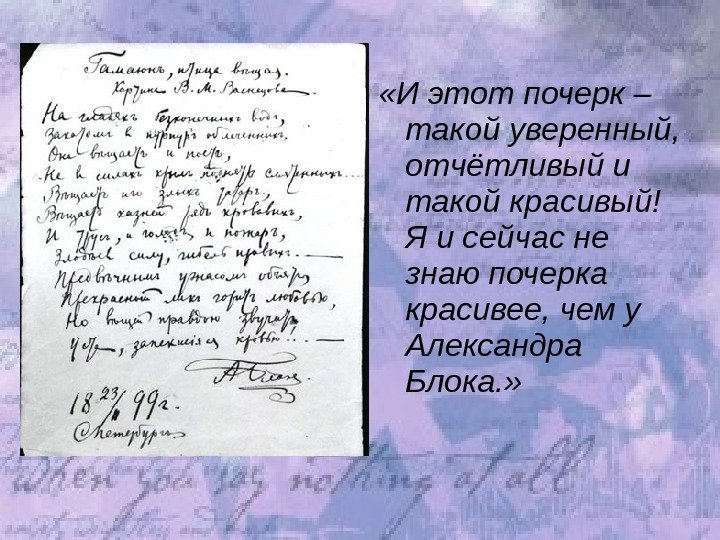 Гамаюнъ, птица вѣщая.
Картина В. М. Васнецова
На гладяхъ безконечныхъ водъ,
Закатомъ в пурпуръ облеченныхъ.
Она вѣщаетъ и поетъ,
Не в силахъ крыл поднять смятенныхъ
Вѣщаетъ иго злыхъ татаръ,
Вѣщаетъ казней рядъ кровавыхъ,
И трусъ, и голодъ, и пожаръ,
Злодѣев силу, гибель правыхъ.
Предвѣчнымъ ужасомъ объятъ,
Прекрасный ликъ горитъ любовью,
Но вѣщей правдою звучатъ
Уста, запекшіяся кровью!!
А. Блок
18 23/II 99 г.
С Петербургъ
«И этот почерк –
такой уверенный,
отчётливый и
такой красивый!
Я и сейчас не
знаю почерка
красивее, чем у
Александра
Блока.»
when you say nothing at all